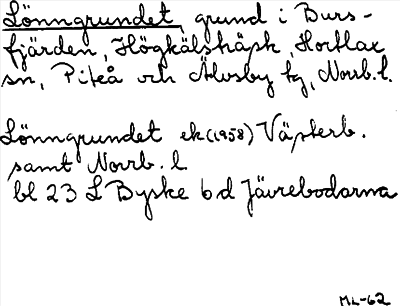 Lönngrundet, grund i Burs-
fjärden, Högkälshäpk, Hortlax
sn, Piteå och Älvsby tg, Norrb.l.
Lönngrundet ek(1958) Västerb.
samt Norrb.l.
bl 23 L Byske 6d Jävrebodarna
ML-62